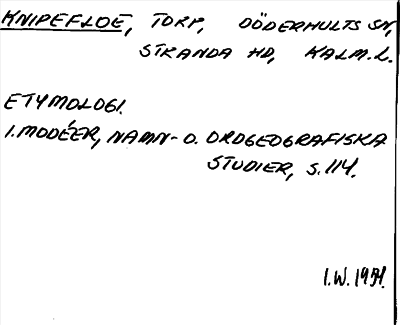 KNIPEFLOE, TORP, DÖDERHULTS SN,
STRANDA HD, KALM. L.
ETYMOLOGI.
I. MODÉER, NAMN- O. ORDGEOGRAFISKA
STUDIER, S. 114.
I.W. 1951.